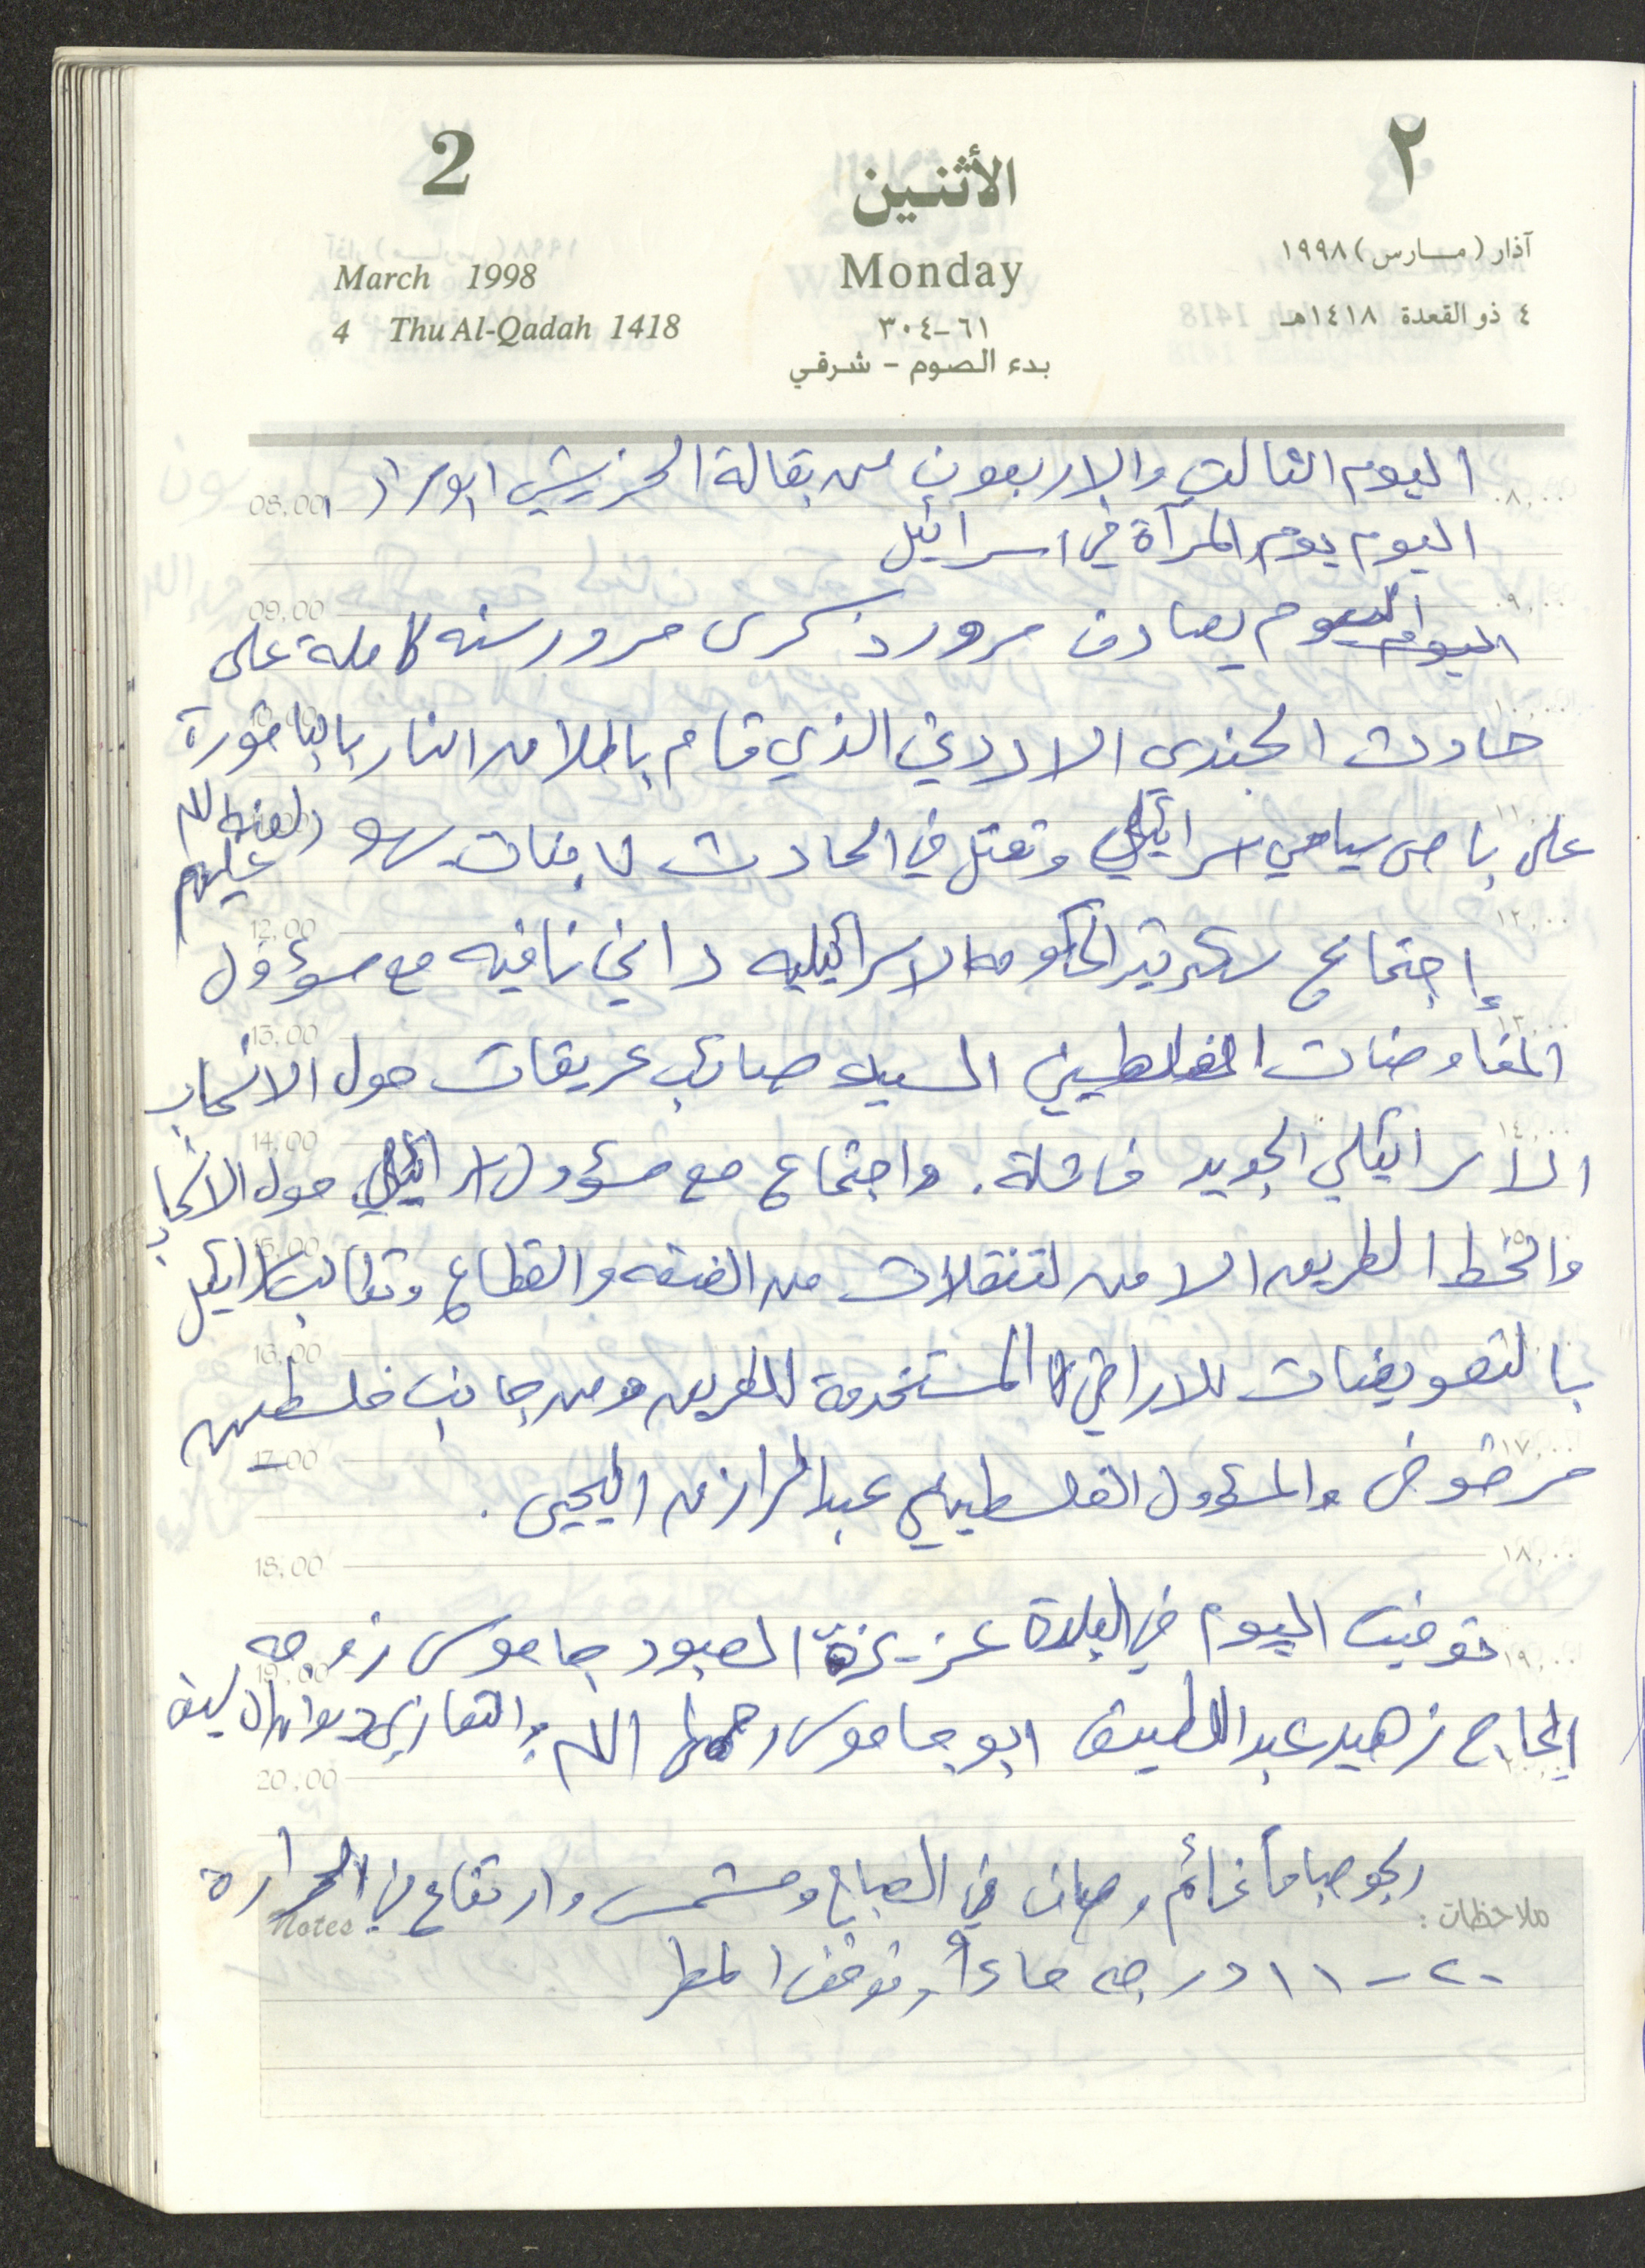 2
الأثنين
٢
March 1998
Monday
آذار (مارس) ١٩٩٨
4 Thu Al-Qadah 1418
٦١-٣٠٤
٤ ذو القعدة ١٤١٨هـ
بدء الصوم - شرقي
اليوم الثالث والاربعون من بقالة الخزيش ابو
08.00 ٠٨,٠٠
اليوم يوم المرآة في اسرائيل
09.00 ٠٩,٠٠
اليوم يصادف مرور ذكرى مرور سنه كاملة على
10.00 ١٠,٠٠
حادث الجندي الاردني الذي قام باطلاق النار بالباقورة
١١,٠٠
على باص سياحي اسرائيلي وقتل في الحادث ٧ بنات يهود لعنه الله عليهم
12.00 ١٢,٠٠
إجتماع سكرتير الحكومه الاسرائيليه داني نافيه مع مسؤول
13.00 ١٣,٠٠
المفاوضات الفلسطيني السيد صائب عريقات حول الانسحاب
14.00 ١٤,٠٠
الاسرائيلي الجديد فاشلة. واجتماع مع مسؤول اسرائيلي حول الانسحاب
15.00
والخط الطريق الامن لتنقلات من الضفه والقطاع وتطالب اسرائيل
16.00
بالتعويضات للاراضي المستخدمة للطريق ومن جانب فلسطين
17.00 ١٧,٠٠
مرفوض والمسؤول الفلسطيني عبد الرازق اليحيى.
18.00 ١٨,٠٠
توفيت اليوم في البلدة عزيزة العبود جاموس زوجه
19.00 ١٩,٠٠
الحاج زهير عبد اللطيف ابو جاموس رحمها الله والتعازي ديوان
20.00
الجو صباحاً غائم وصافي في الصباح ومشمس وارتفاع في الحرارة
ملاحظات: Notes
٢٠-١١ درجه ماءاً وتوقف المطر